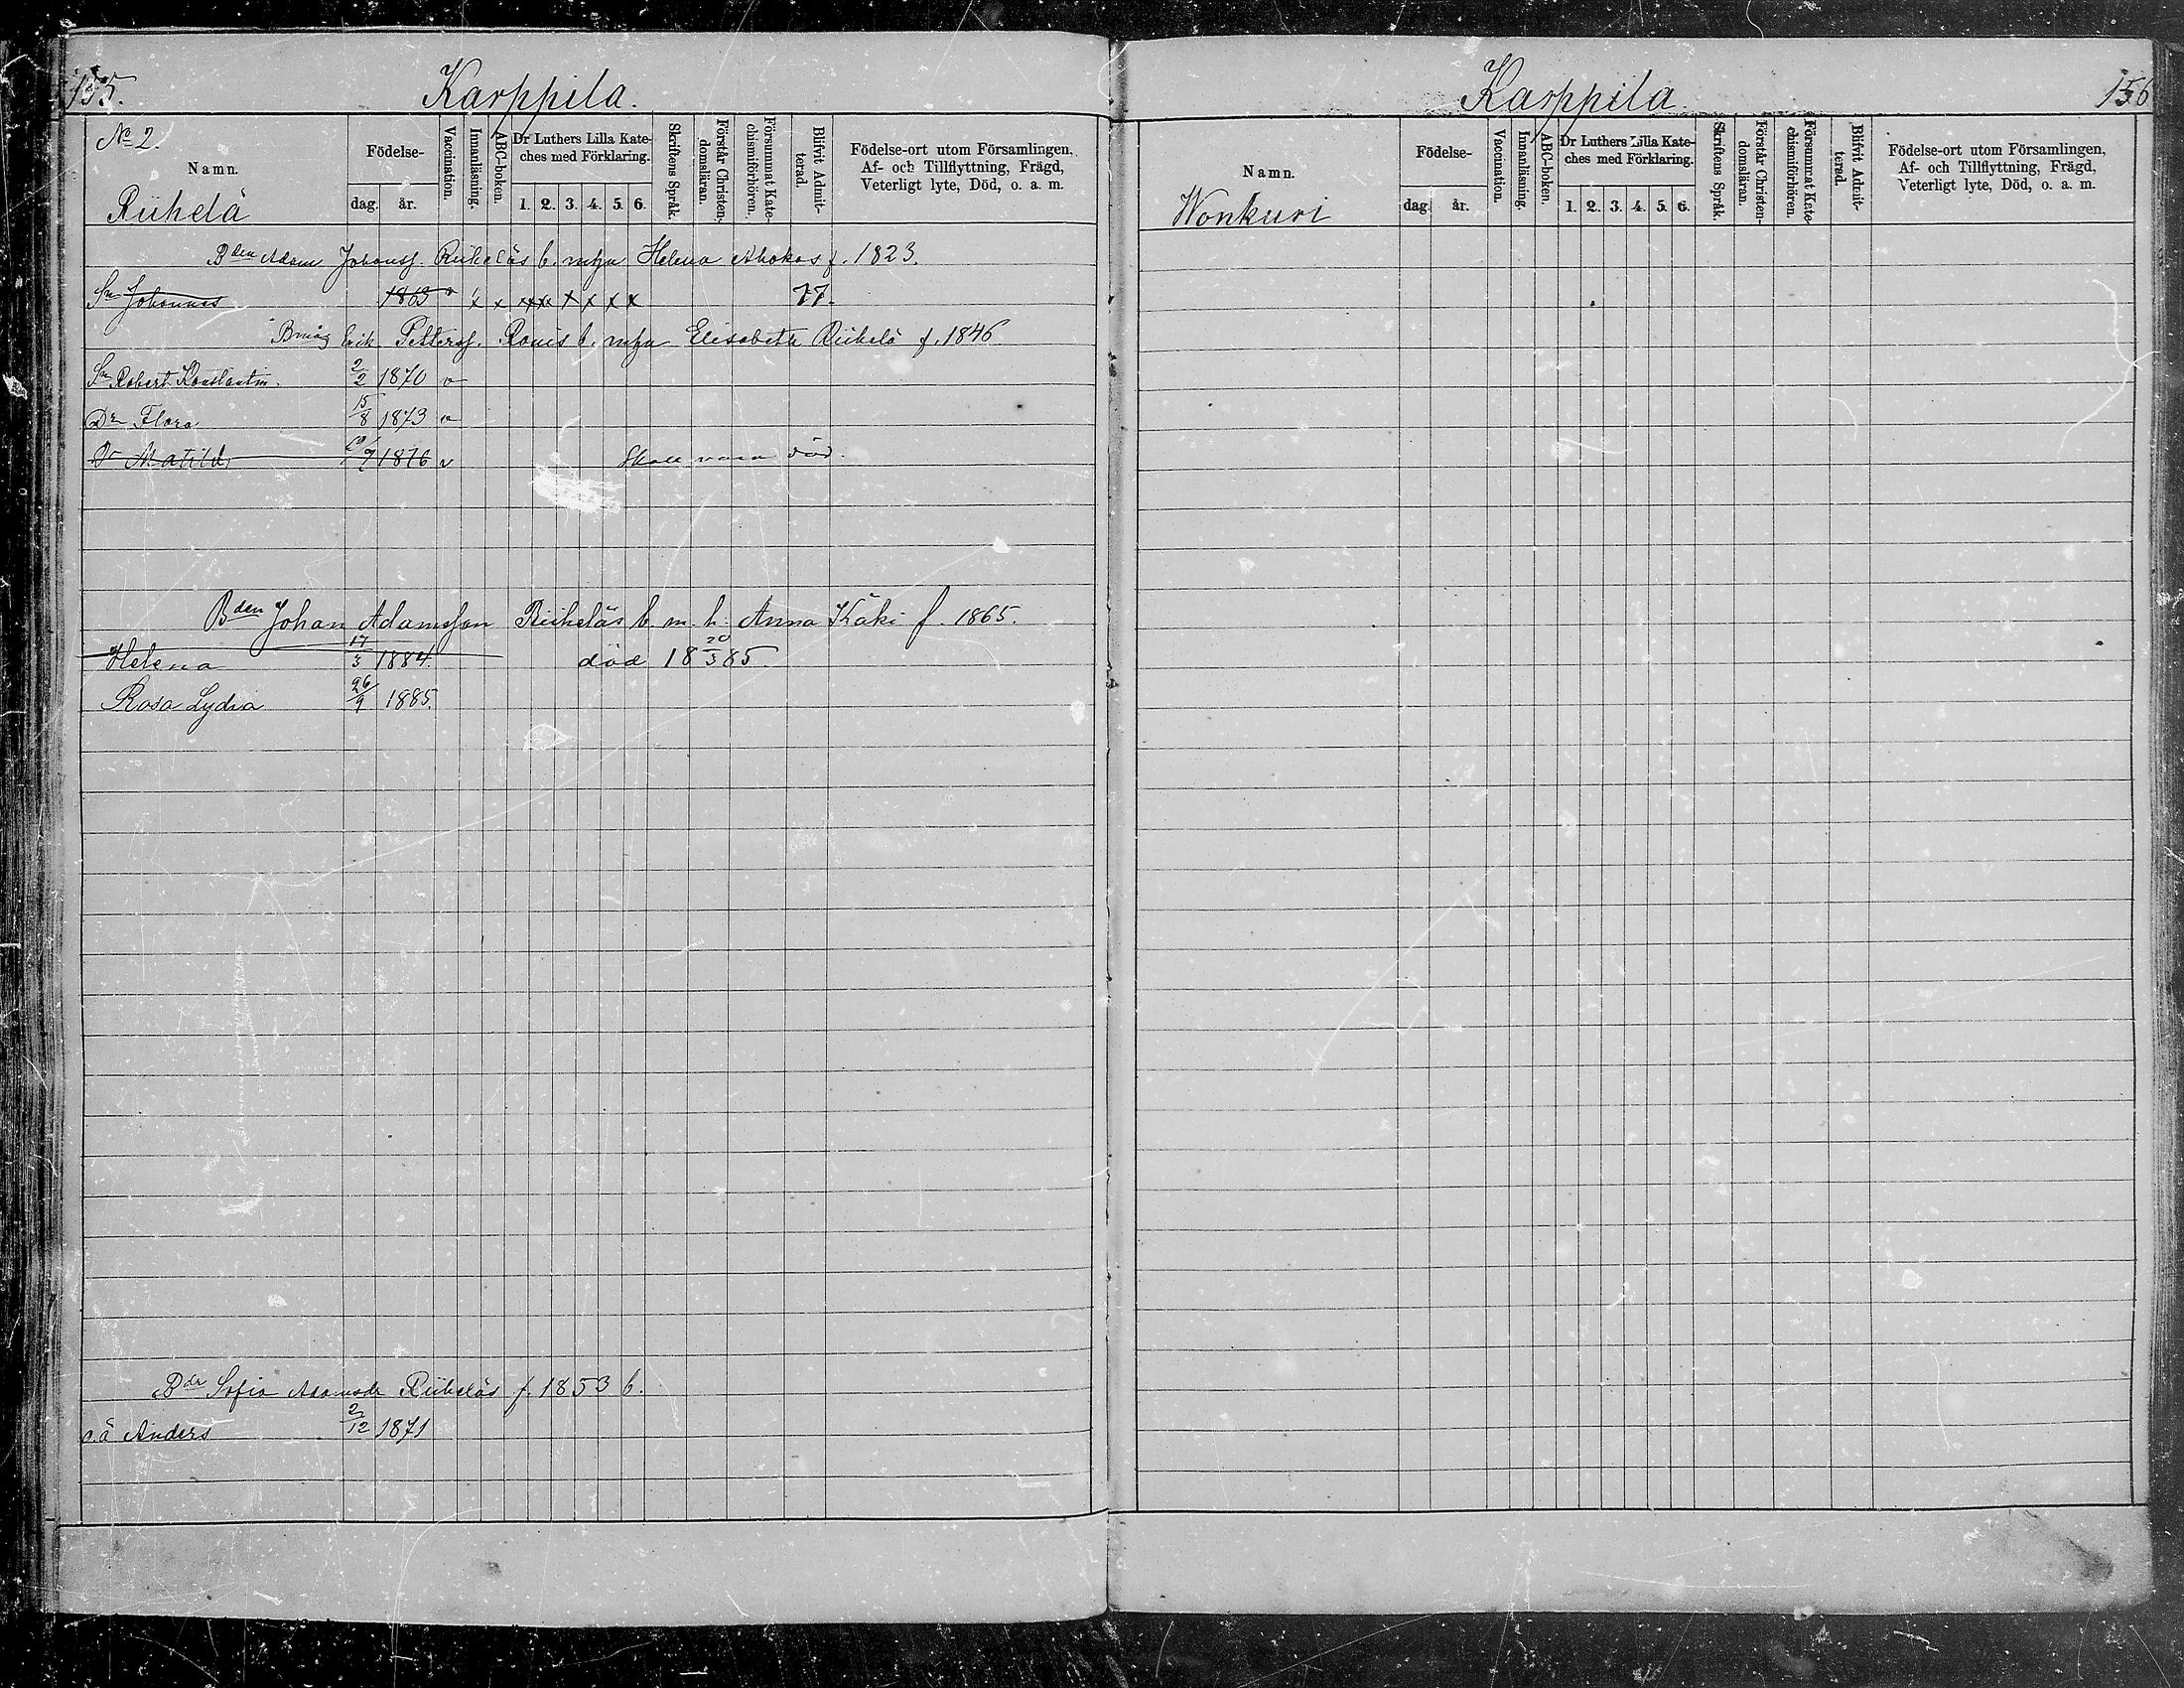 155.
Karppila.
No 2.
Namn.
Riihelä
Födelse-
dag. år.
Vaccination.
Innanläsning.
ABC-boken.
Dr Luthers Lilla Kate-
ches med Förklaring.
1. 2. 3. 4. 5. 6.
Skriftens Språk.
Förstår Christen-
domsläran.
Försummat Kate-
chismiförhören.
Blifvit Admit-
terad.
Födelse-ort utom Församlingen,
Af- och Tillflyttning, Frägd,
Veterligt lyte, Död, o. a. m.
Bden Adam Johanss. Riiheläs b. m hu Helena Ahokas f. 1823.
Sn Johannes 1863 v x x xxx x x x x 77.
Bmåg Erik Petterss. Rouis b. m hu Elisabeth Riihelä f. 1846
Sn Robert Konstantin. 2/2 1870 v
Dr Flora 15/8 1873 v
Dr Matild 19/9 1876 v Skall vara död.
Bden Johan Adamsson Riiheläs b. m. h. Anna Käki f. 1865.
Helena 17/3 1884. död 18 20/3 85.
Rosa Lydia 26/9 1885.
Bdr Sofia Adamsdr Riiheläs f. 1853 b.
o.ä Anders 2/12 1871
Karppila
156
Namn.
Wonkuri
Födelse-
dag. år.
Vaccination.
Innanläsning.
ABC-boken.
Dr Luthers Lilla Kate-
ches med Förklaring.
1. 2. 3. 4. 5. 6.
Skriftens Språk.
Förstår Christen-
domsläran.
Försummat Kate-
chismiförhören.
Blifvit Admit-
terad.
Födelse-ort utom Församlingen,
Af- och Tillflyttning, Frägd,
Veterligt lyte, Död, o. a. m.